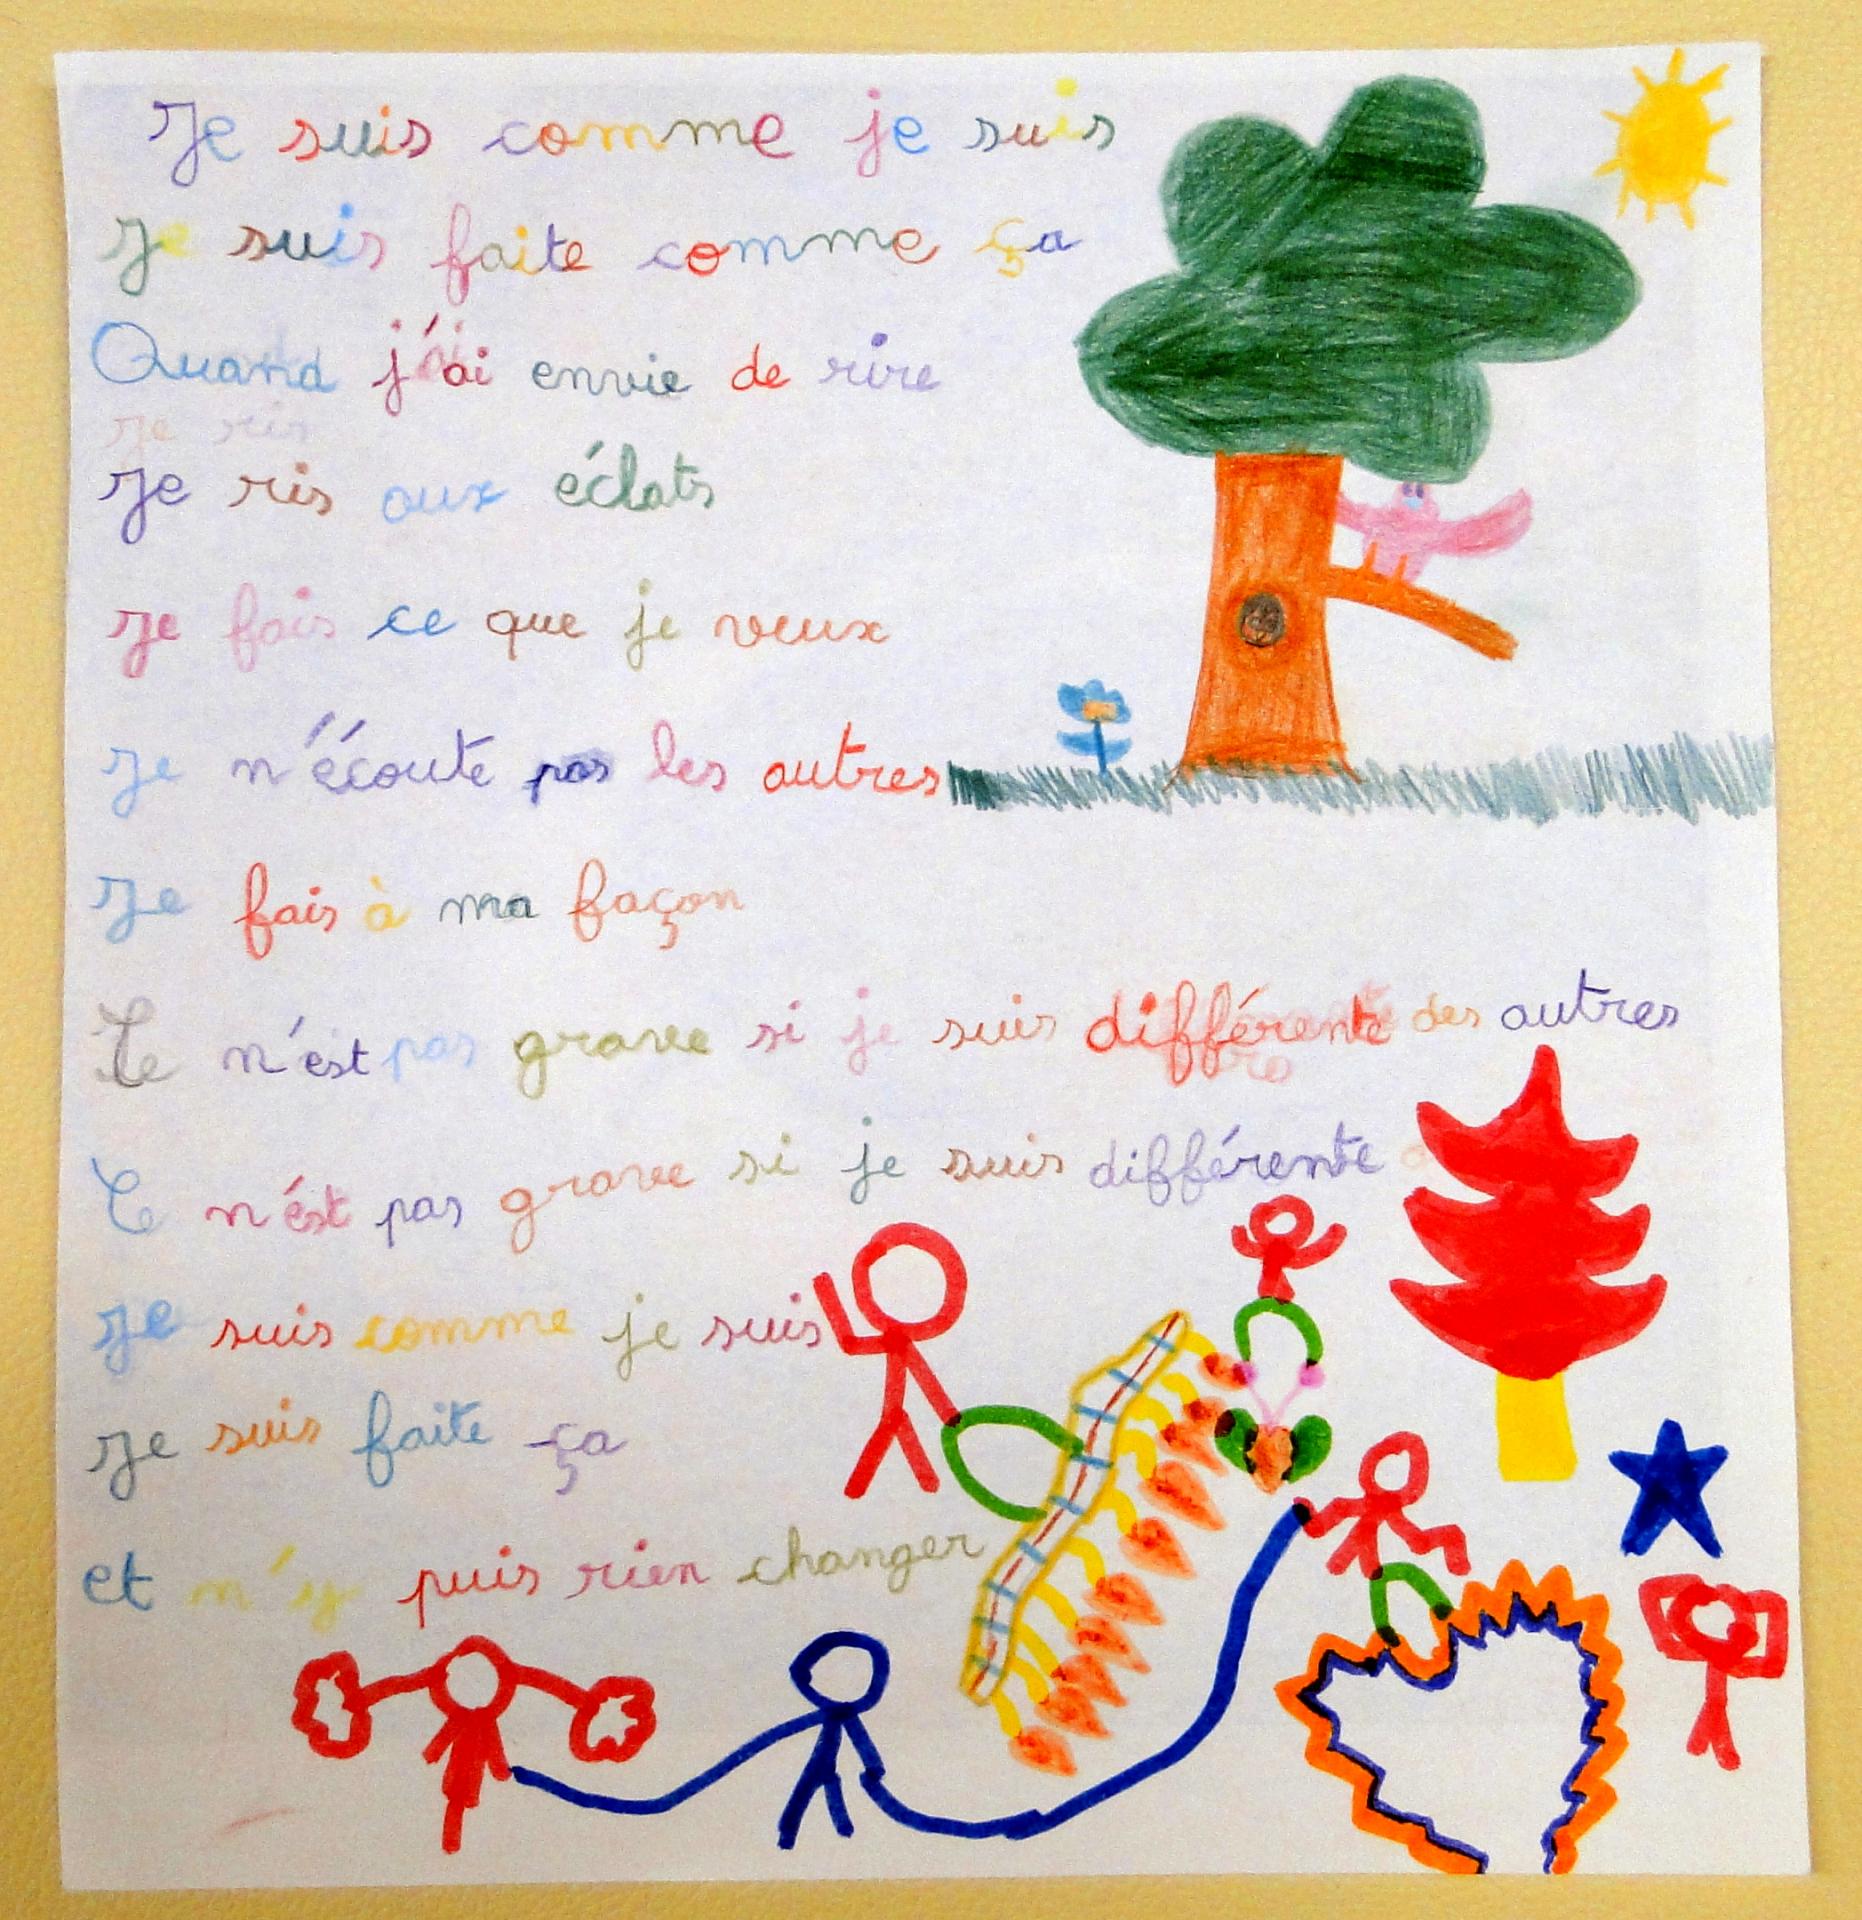 Je suis comme je suis
Je suis faite comme ça
Quand j'ai envie de rire
Je ris
Je ris aux éclats
Je fais ce que je veux
Je n'écoute pas les autres
Je fais à ma façon
Ce n'est pas grave si je suis différente des autres
Ce n'est pas grave si je suis différente
Je suis comme je suis
Je suis faite ça
et n'y puis rien changer